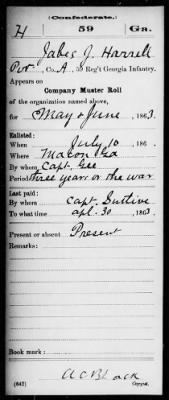 (Confederate.)
H 59 Ga.
Jabes J. Harrell
Pvt, Co. A, 59 Reg't Georgia Infantry.
Appears on
Company Muster Roll
of the organization named above,
for May & June, 1863.
Enlisted:
When July 10, 186 .
Where Macon Ga
By whom Capt. Gee
Period three years or the war
Last paid:
By whom Capt.
To what time Apl. 30, 1863.
Present or absent Present
Remarks:
Book mark:
(642) A C Black
Copyist.